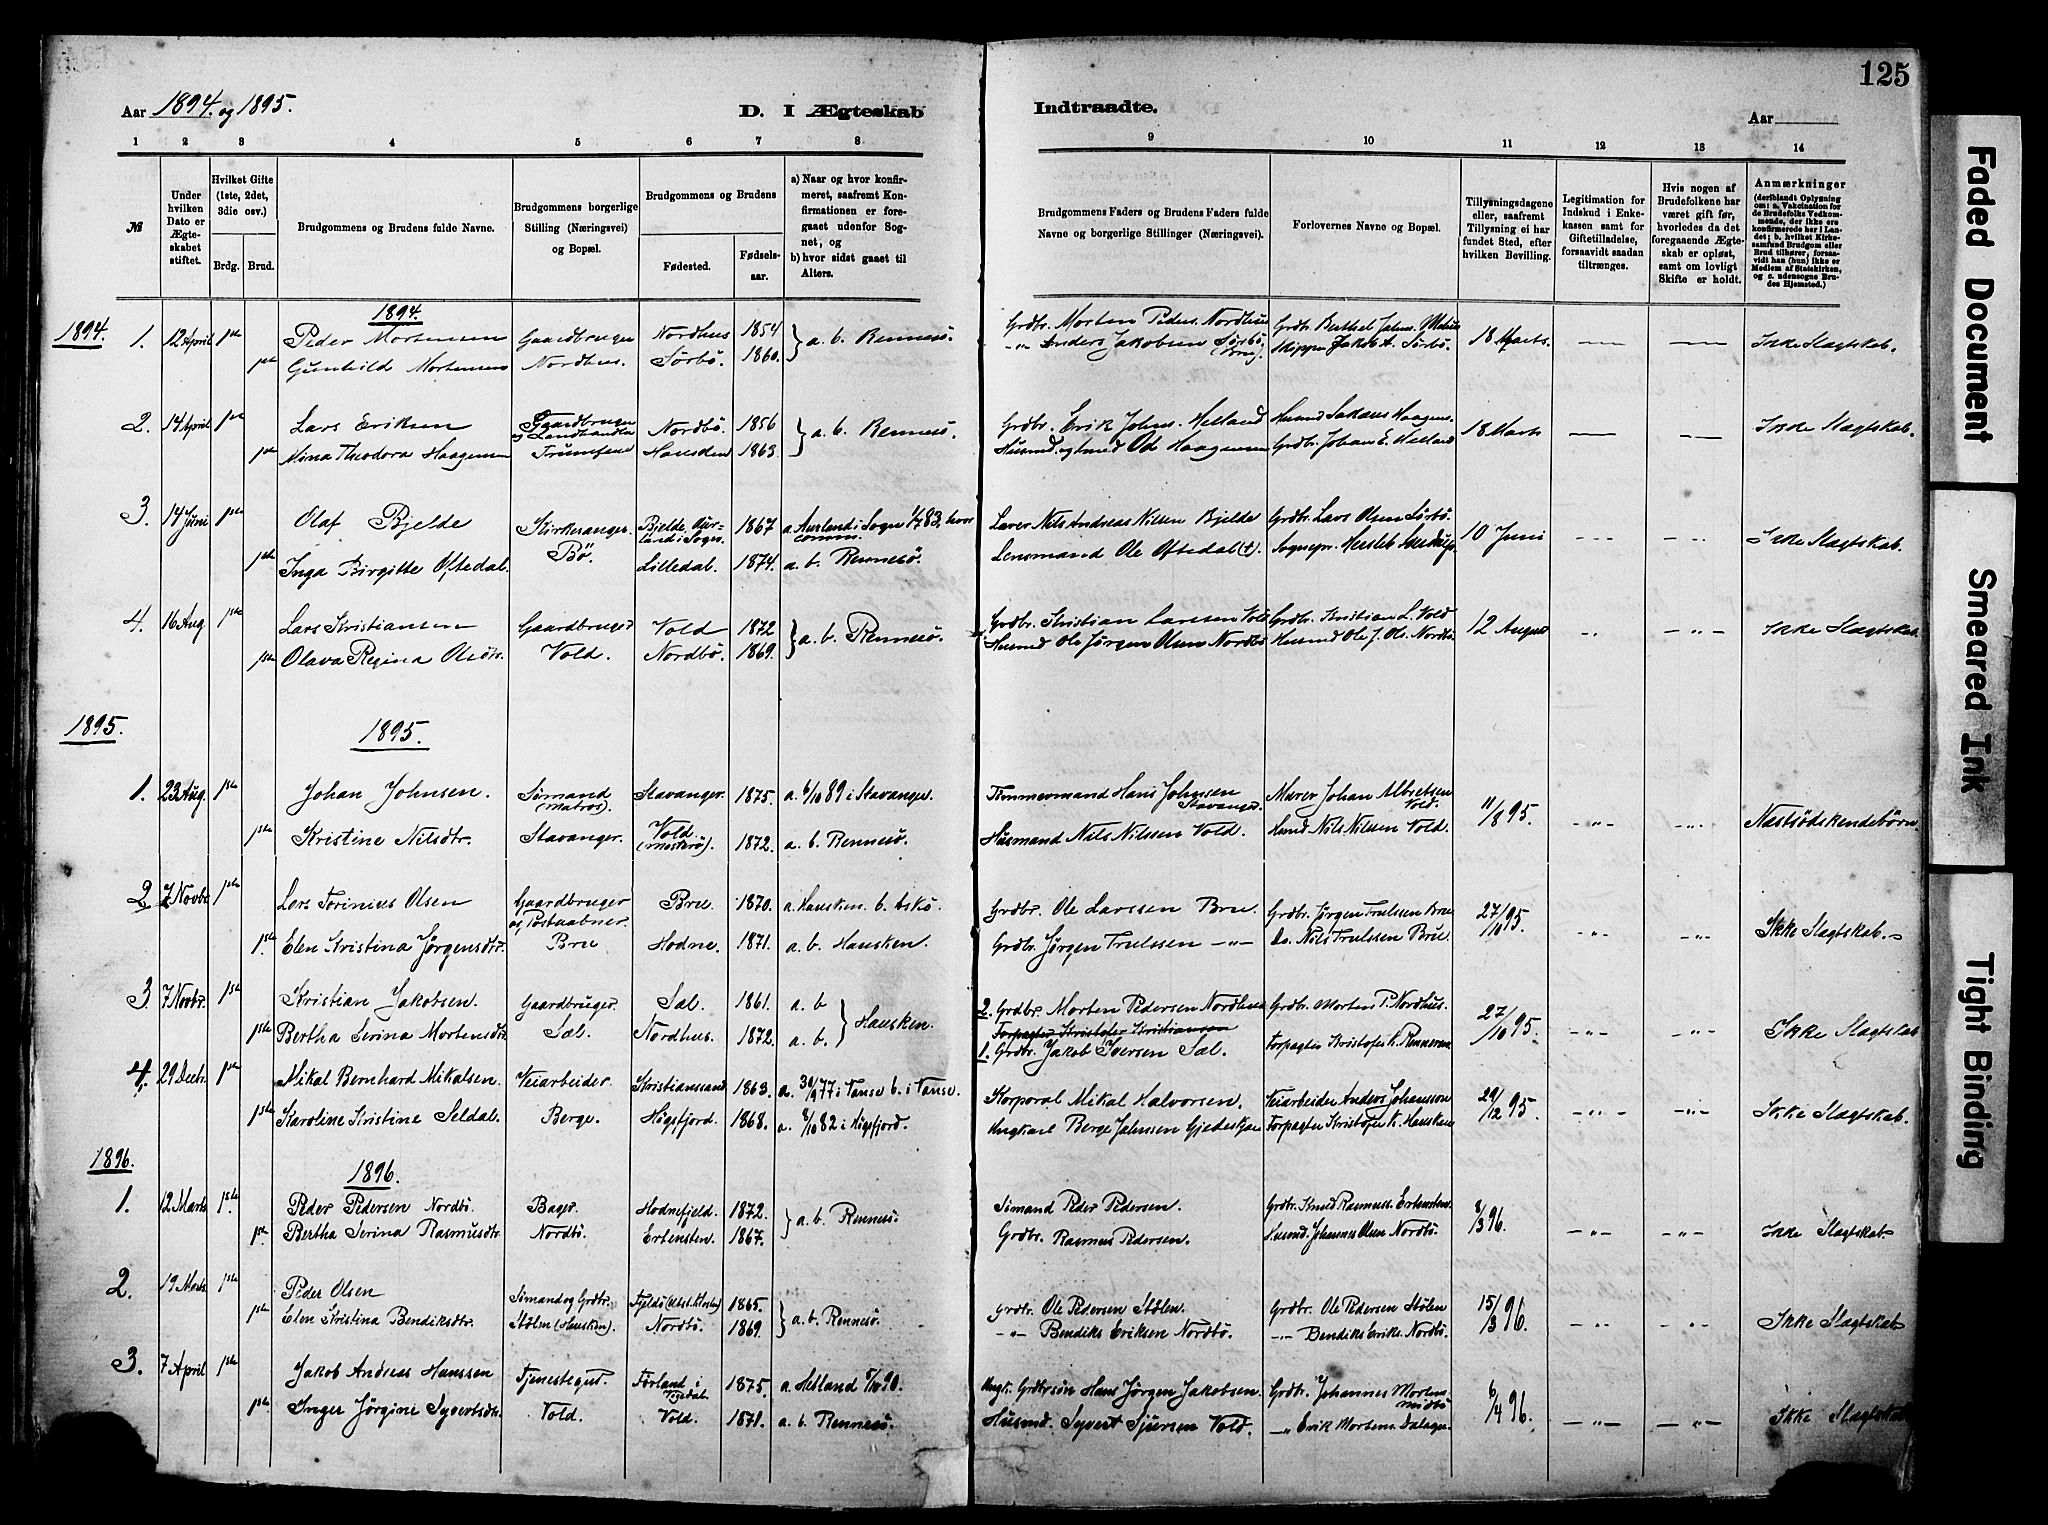 125
Aar 1894. og 1895.
D. I Ægteskab
Indtraadte.
Aar
1 2 3 4 5 6 7 8 9 10 11 12 13 14
№
Under hvilken Dato er Ægteskabet stiftet.
Hvilket Gifte (1ste, 2det, 3die osv.)
Brdg. Brud.
Brudgommens og Brudens fulde Navne.
Brudgommens borgerlige Stilling (Næringsvei) og Bopæl.
Brudgommens og Brudens
Fødested.
Fødselsaar.
a) Naar og hvor konfirmeret, saafremt Konfirmationen er foregaaet udenfor Sognet, og
b) hvor sidst gaaet til Alters.
Brudgommens Faders og Brudens Faders fulde Navne og borgerlige Stillinger (Næringsvei).
Forlovernes Navne og Bopæl.
Tillysningsdagene eller, saafremt Tillysning ei har fundet Sted, efter hvilken Bevilling.
Legitimation for Indskud i Enkekassen samt for Giftetilladelse, forsaavidt saadan tiltrænges.
Hvis nogen af Brudefolkene har været gift før, hvorledes da det foregaaende Ægteskab er opløst, samt om lovligt Skifte er holdt.
Anmærkninger (deriblandt Oplysning om: a. Vakcination for de Brudefolks Vedkommende, der ikke ere konfirmerede her i Landet; b. hvilket Kirkesamfund Brudgom eller Brud tilhører, forsaavidt han (hun) ikke er Medlem af Statskirken, og c. udensogns Brudes Hjemsted.)
1894. 1894.
1. 12 April 1ste Peder Mortensen Gaardbruger Nordhus 1854 } a. b. Rennesö. Grdbr. Morten Peders. Nordhus Grdb. Berthel Johns. 18 Marts. Ikke Slagtskab.
1ste Gunhild Mortensen Nordhus. Sörbö. 1860. -"- Anders Jakobsen Sörbö Skipper Jakob A. Sörbö.
2. 14 April 1ste Lars Eriksen Gaardbruger og Landhandler Nordbö. 1856 } a. b. Rennesö. Grdbr. Erik Johns. Helland Husmd Haagens. 18 Marts Ikke Slagtskab.
1ste Nina Theodora Haagensen Hausken 1863. Husmd. og Haagensen Grdbr. Johan E. Helland
3. 14 Juni 1ste Olaf Bjelde Kirkesanger Bjelde, Aurland i Sogn. 1867 a. Aurland i Sogn 83, hvor comm. Nils Andreas Nilsen Bjelde Grdbr. Lars Olsen Sörbö. 10 Juni Ikke Slagtskab.
1ste Inga Birgitte Oftedal. Bö. Lilledal. 1874. a. b. Rennesö. Lensmand Ole Oftedal (†). Sognepr.
4. 16 Aug 1ste Lars Kristiansen Gaardbruger Vold 1872 } a. b. Rennesö. Grdbr. Kristian Larsen Vold Grdbr. Kristian L. Vold 12 August Ikke Slagtskab.
1ste Olava Regina Olsdtr. Vold. Nordbö. 1869. Husmd Ole Jörgen Olsen Nordbö Husmd Ole J. Ols. Nordbö.
1895. 1895.
1. 23 Aug. 1ste Johan Johnsen. Sömand (Matros) Stavanger. 1875. a. 6/10 89 i Stavanger. Tömmermand Hans Johnsen Stavanger. Murer Johan Albretsen Vold. 11/8 95. Næstsödskendebörn.
1ste Kristine Nilsdtr. Stavanger. Vold. (Mosterö). 1872. a. b. Rennesö. Husmand Nils Nilssen Vold. Husmd Nils Nilssen Vold.
2. 7 Novbr. 1ste Lars Torinius Olsen Gaardbruger og Postaabner. Bru. 1870. a. Hausken. b. Askö. Grdbr. Ole Larssen Bru. Grdbr. Jörgen Trulssen Bru 27/10 95. Ikke Slagtskab.
1ste Elen Kristina Jörgensdtr. Bru Hodne. 1871. a. b. Hausken. Grdbr. Jörgen Trulssen -"- Do. Nils Trulssen Bru.
3. 7 Novbr. 1ste Kristian Jakobsen. Gaardbruger. Sæl. 1861. a. b } Hausken. 2. Grdbr. Morten Pedersen Nordhus Grdbr. Morten P. Nordhus. 27/10 95. Ikke Slagtskab
Forpagter Kristofer Kristiansen
1ste Bertha Serina Mortensdtr. Sæl. Nordhus. 1872. a. b 1. Grdbr. Jakob Iversen Sæl. Forpagter Kristofer K. Renneren.
4. 29 Decbr. 1ste Mikal Bernhard Mikalsen. Veiarbeider. Kristianssand 1863. a. 30/9 77 i Vanse b. i Vanse. Korporal Mikal Halvorsen. Veiarbeider Anders Johansson 29/12 95. Ikke Slagtskab.
1ste Karoline Kristine Seldal. Berge. Högsfjord. 1868. a. 8/10 82 i Högsfjord. Ungkarl Berge Johnsen Gjedeskjær Forpagter Kristofer K. Hausken
1896. 1896.
1. 12 Marts 1ste Peder Pedersen Nordbö. Bager. Hodnefjeld. 1872. } a. b. Rennesö. Sömand Peder Pedersen. Grdbr. Knud Rasmus. Ertensten. 8/3 96. Ikke Slagtskab
1ste Bertha Serina Rasmusdtr. Nordbö. Ertensten. 1867. Grdbr. Rasmus Pedersen. Husmd. Johannes Olsen Nordbö.
2. 19 Marts 1ste Peder Olsen Sömand og Grdbr. Fjeldö (Utst. Kloster) 1865. } a. b. Rennesö. Grdbr. Ole Pedersen Stölen. Grdbr. Ole Pedersen Stölen 15/3 96. Ikke Slagtskab
1ste Elen Kristina Bendiksdtr. Stölen (Hausken). Nordbö. 1869. -"- Bendiks Eriksen Nordbö. -"- Bendiks Eriks. Nordbö.
3. 7 April 1ste Jakob Andreas Hanssen Tjenestegut. Förland i 1875. a. Hetland 5/10 90. Ungk. Grdbrsön Hans Jörgen Jakobsen. Grdbr. Johannes Mortens. 6/4 96. Ikke Slagtskab
1ste Inger Jörgine Syvertsdtr. Vold. Vold. 1871. a. b. Rennesö. Husmd. Syvert Sjursen Vold. -"- Erik Mortens. Dalager.
Faded Document
Smeared Ink
Tight Binding